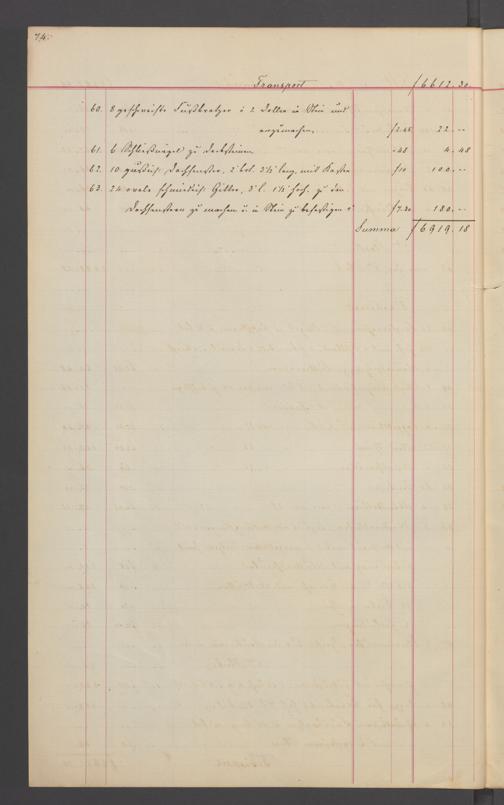 74.
Transport f 6612. 30
60. 8 geschweifte Fußkratzer à 2 Dollen in Stein und
anzumachen. f 2.45 22. --
61. 6 Schließnägel zu Decksteinen -48 4. 48
62. 10 gußeis. Dachfenster, 2' brt. 3½' lang, mit Kasten f 10 100. --
63. 24 ovale schmiedeis. Gitter, 3' l. 1½' hoch, zu den
Dachfenstern zu machen u. in Stein zu befestigen à f 7.30 180. --
Summa f 6919. 18